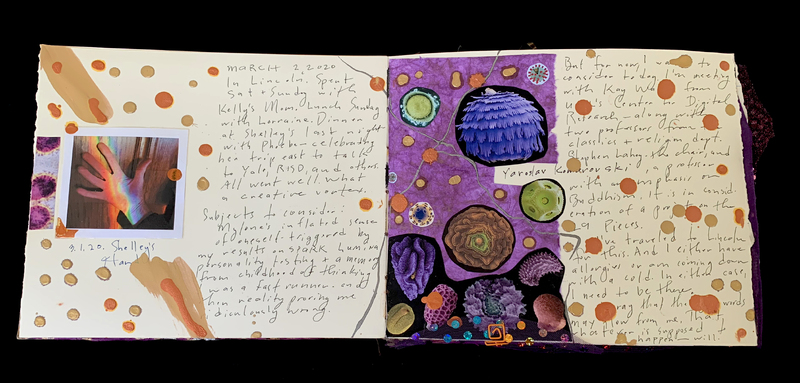 MARCH 2, 2020
In Lincoln. Spent
Sat + Sunday with
Kelly's Mom. Lunch Sunday
with Lorraine. Dinner
at Shelley's last night
with Photon - celebrating
her trip east to talk
to Yale, RISD, and others.
All went well. What
a creative vortex.
Subjects to consider:
Mylona's inflated sense
of oneself triggered by
my results in SPARK human
personality testing + a memory
from childhood of thinking
I was a fast runner. and
then reality proving me
ridiculously wrong.
3.1.20. Shelley's
Hand
Yaroslav Komarovski
But for now, I want to
consider today. I'm meeting
with Kay W from
Center for Digital
Research - along with
two professors from
classics + religion dept.
Stephen Lahey, the chair, and
, a professor
with an emphasis on
Buddhism. It is in consid-
eration of a project on the
9 Pieces.
I've traveled to Lincoln
for this. And I either have
allergies or am coming down
with a cold. In either case,
I need to be there.
that the words
may flow from me. That
whatever is supposed to
happen - will.